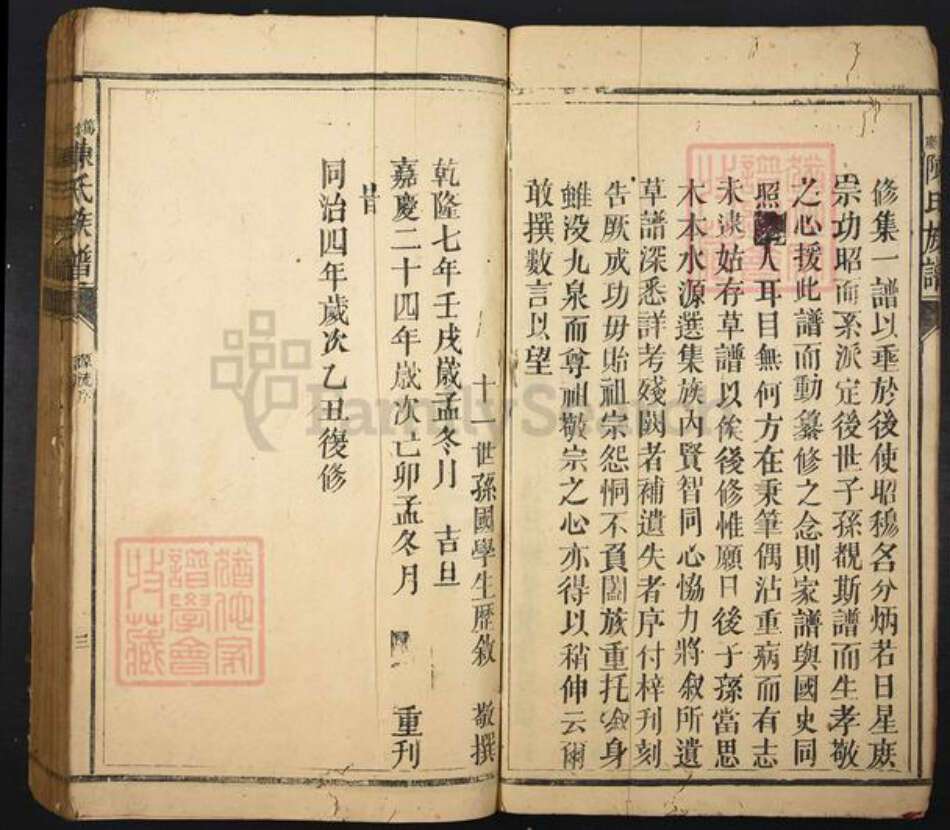 陳氏族譜
修集一譜以垂於後使昭穆各分炳若日星庶
宗功昭而系派定後世子孫覩斯譜而生孝敬
之心援此譜而動纂修之念則家譜與國史同
照人耳目無何方在秉筆偶沾重病而有志
未逮姑存草譜以俟後修惟願日後子孫當思
木本水源選集族內賢智同心恊力將叙所遺
草譜深悉詳考殘闕者補遺失者序付梓刊刻
告厥成功毋貽祖宗怨恫不負闔族重托叙身
雖没九泉而尊祖敬宗之心亦得以稍伸云爾
敢撰數言以望
十一世孫國學生歷敘 敬撰
乾隆七年壬戌歲孟冬月 吉旦
嘉慶二十四年歲次己卯孟冬月 重刊
旹
同治四年歲次乙丑復修
陳氏族譜
源流序
三
FamilySearch